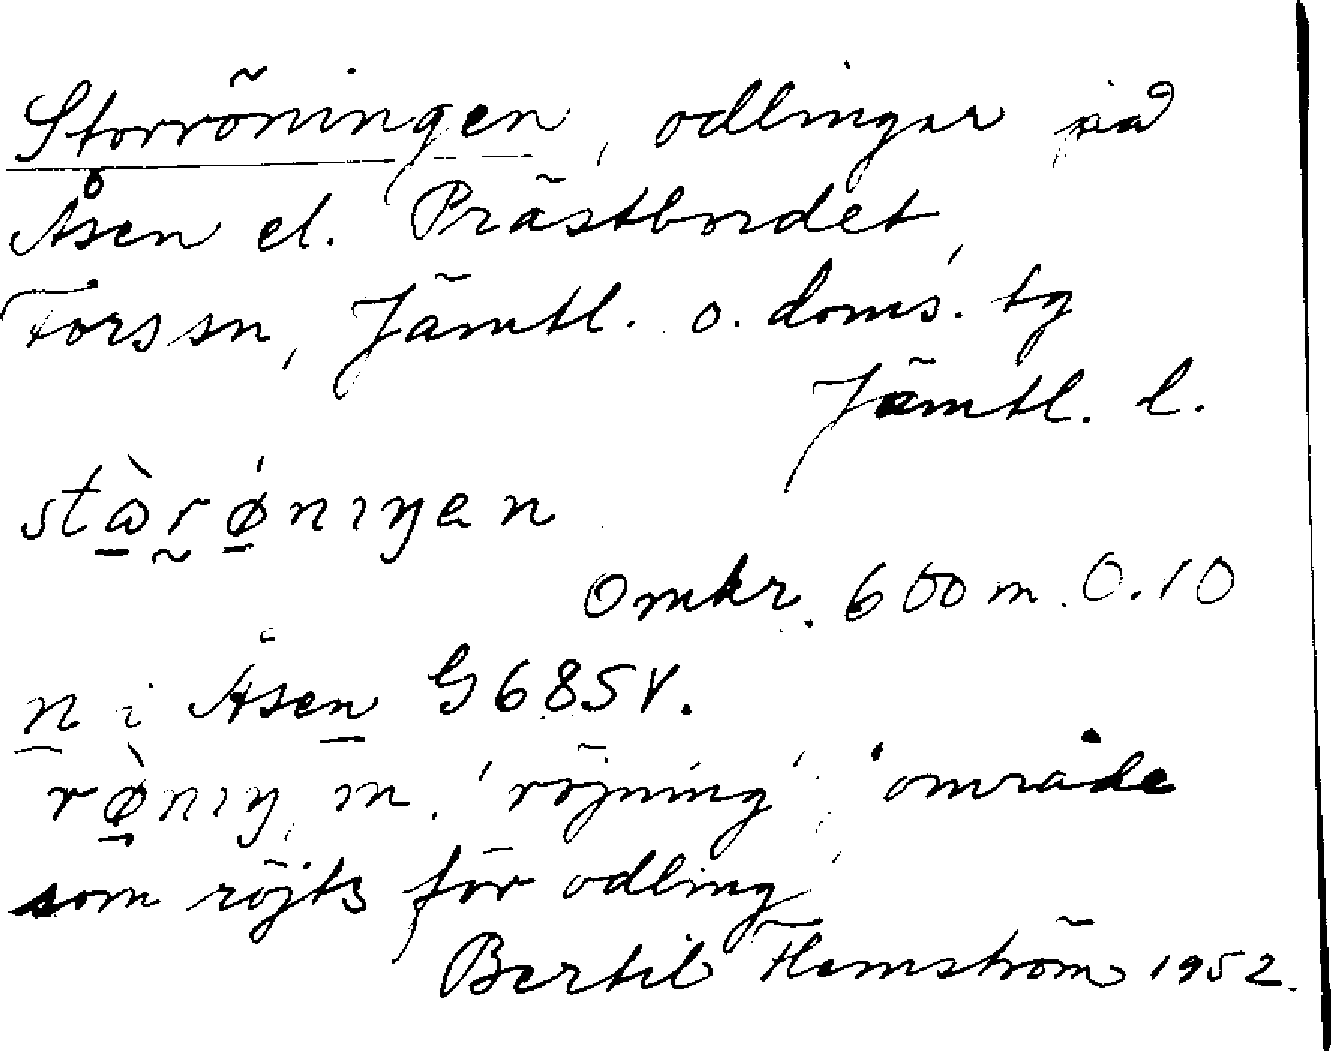 Storröningen, odlingar på
Åsen el. Prästbordet,
Fors sn, Jämtl. ö. doms. tg
Jämtl. l.
stɷ̀rǿnıŋen
Omkr. 600 m. O. 10
n i Åsen G685V.
rø̀nıŋ, m. 'röjning', 'område
som röjts för odling'
Bertil Flemström 1952.